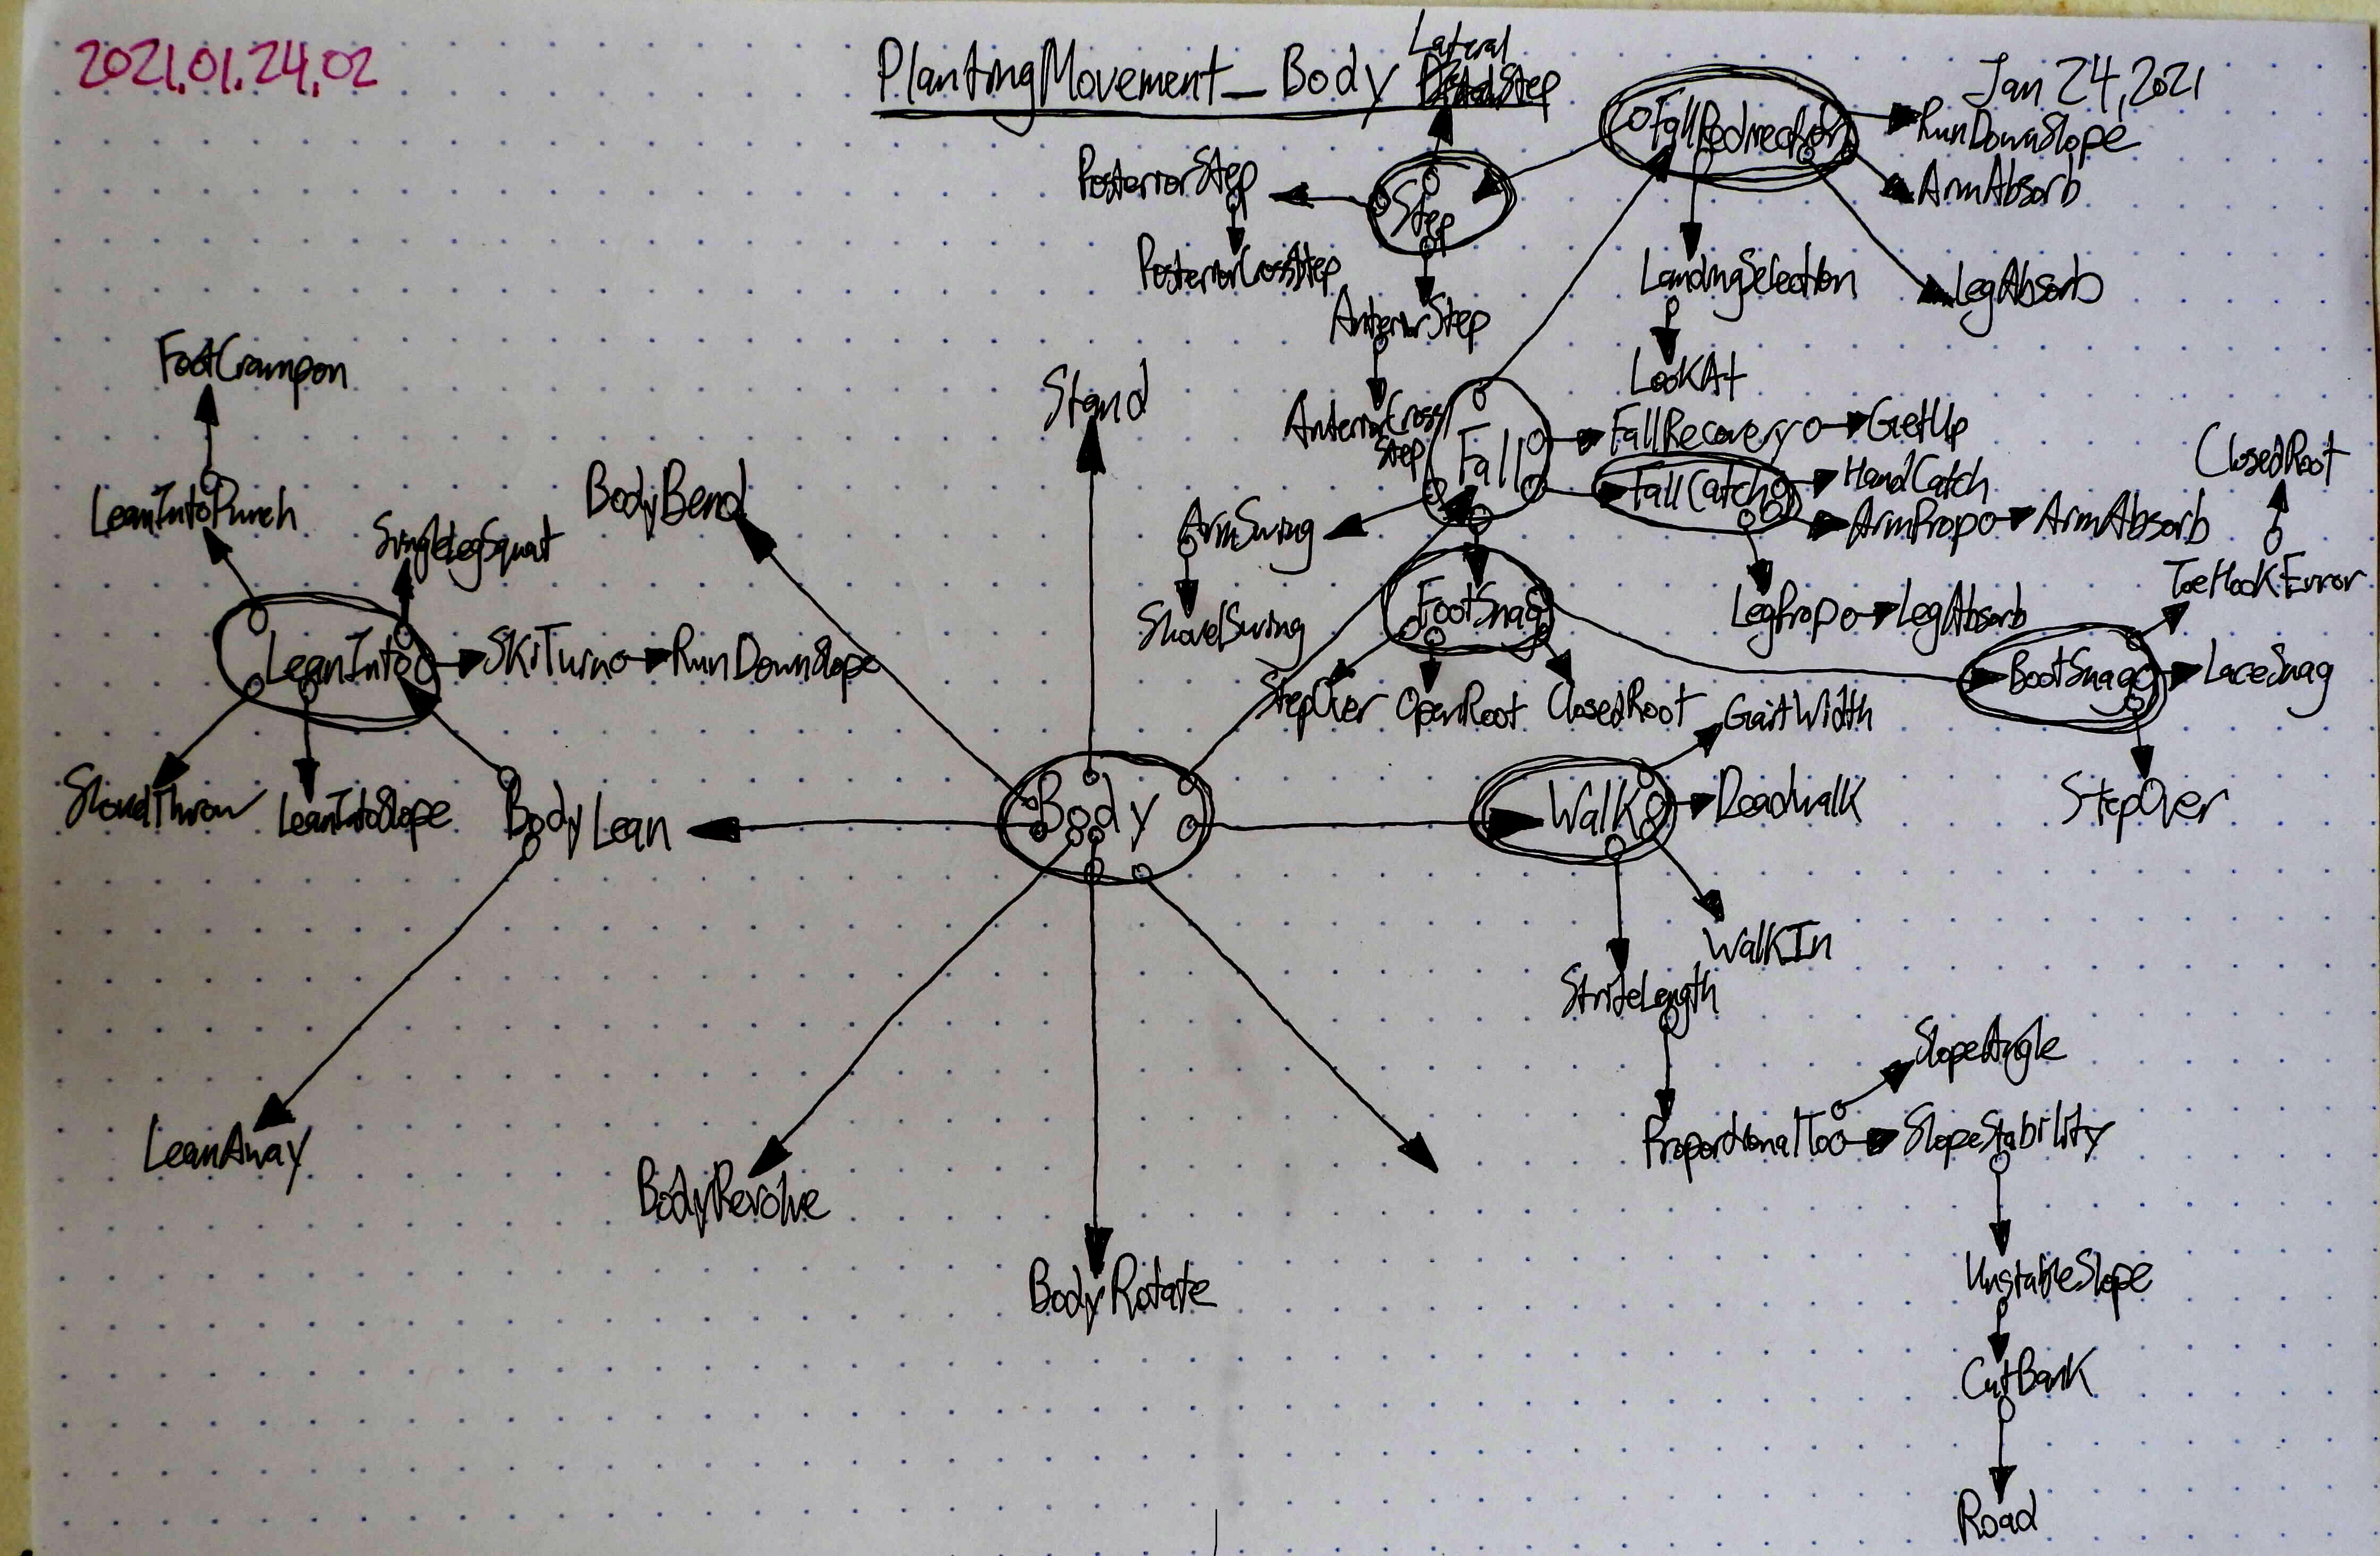 2021.01.24.02
PlantingMovement_Body
Jan 24, 2021
Lateral
Step
FallRedirection
RunDownSlope
ArmAbsorb
PosteriorStep
Step
PosteriorCrossStep
LandingSelection
LegAbsorb
AnteriorStep
LookAt
FootCrampon
Stand
AnteriorCross
Step
Fall
FallRecovery
GetUp
ClosedRoot
FallCatch
HandCatch
BodyBend
LeanIntoPunch
ArmSwing
ArmProp
ArmAbsorb
SingleLegSquat
ToeHookError
ShovelSwing
FootSnag
LegProp
LegAbsorb
LeanInto
SkiTurn
RunDownSlope
BootSnag
LaceSnag
StepOver
OpenRoot
ClosedRoot
GaitWidth
ShovelThrow
LeanIntoSlope
BodyLean
Body
Walk
Roadwalk
StepOver
WalkIn
StrideLength
SlopeAngle
LeanAway
ProportionalTo
SlopeStability
BodyRevolve
BodyRotate
UnstableSlope
CutBank
Road